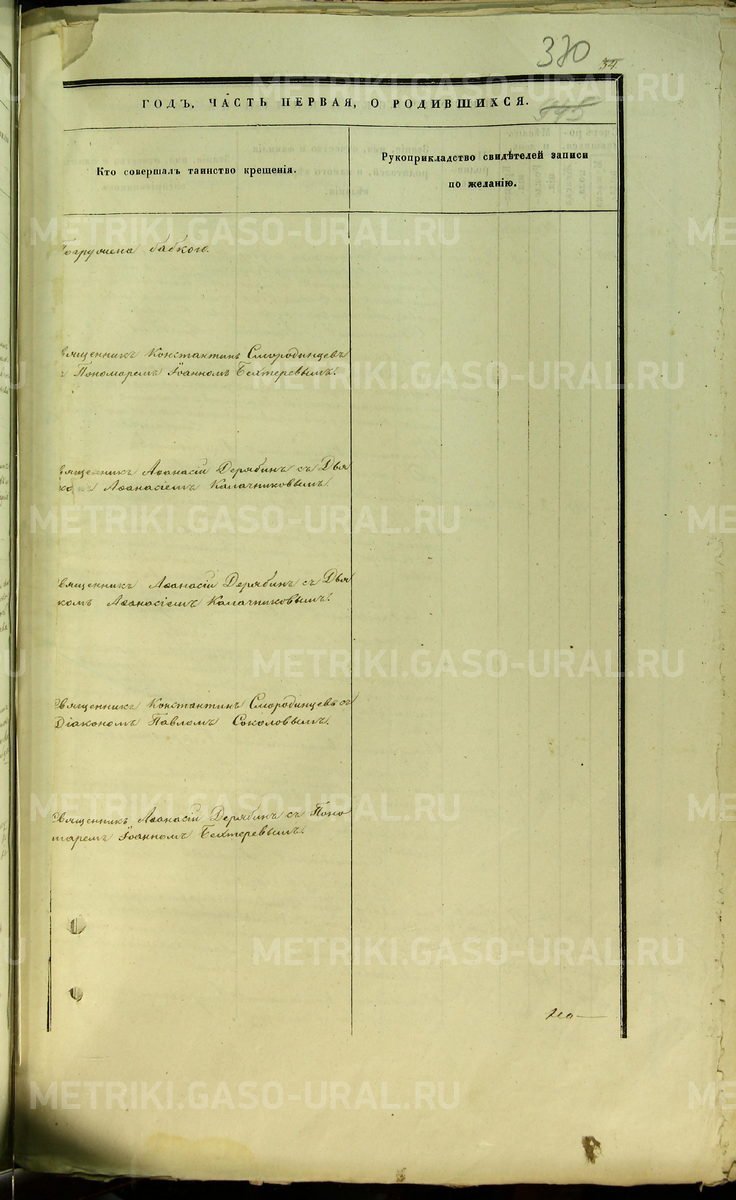 370
34
ГОДЪ, ЧАСТЬ ПЕРВАЯ, О РОДИВШИХСЯ.
Кто совершалъ таинство крещенія.
Рукоприкладство свидѣтелей записи
по желанію.
огружена бабкою.
вященникъ Константинъ Смородинцевъ
Пономаремъ Іоанномъ Бехтеревымъ.
вященникъ Аѳанасій Дерябинъ съ Дья
Аѳанасіемъ Калачниковымъ.
вященникъ Аѳанасій Дерябинъ съ Дья
комъ Аѳанасіемъ Калачниковымъ.
Священникъ Константинъ Смородинцевъ съ
Діакономъ Павломъ Соколовымъ.
Священникъ Аѳанасій Дерябинъ съ Поно
маремъ Іоанномъ Бехтеревымъ.
METRIKI.GASO-URAL.RU